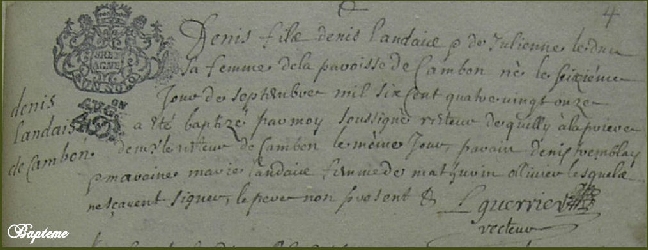 4
denis
landais
de Cambon
Denis fils denis landais & de Julienne le duc
sa femme de la paroisse de Cambon né le seizième
Jour de septembre mil six cent quatre vingt onze
a été baptizé par moy soussigné recteur de quilly à la prière
de mr le recteur de Cambon le même Jour parain denis tremblay
& maraine marie landaise femme de mathurin ollivier lesquels
ne sçavent signer, le pere non present &
L guerrier
recteur
Bapteme